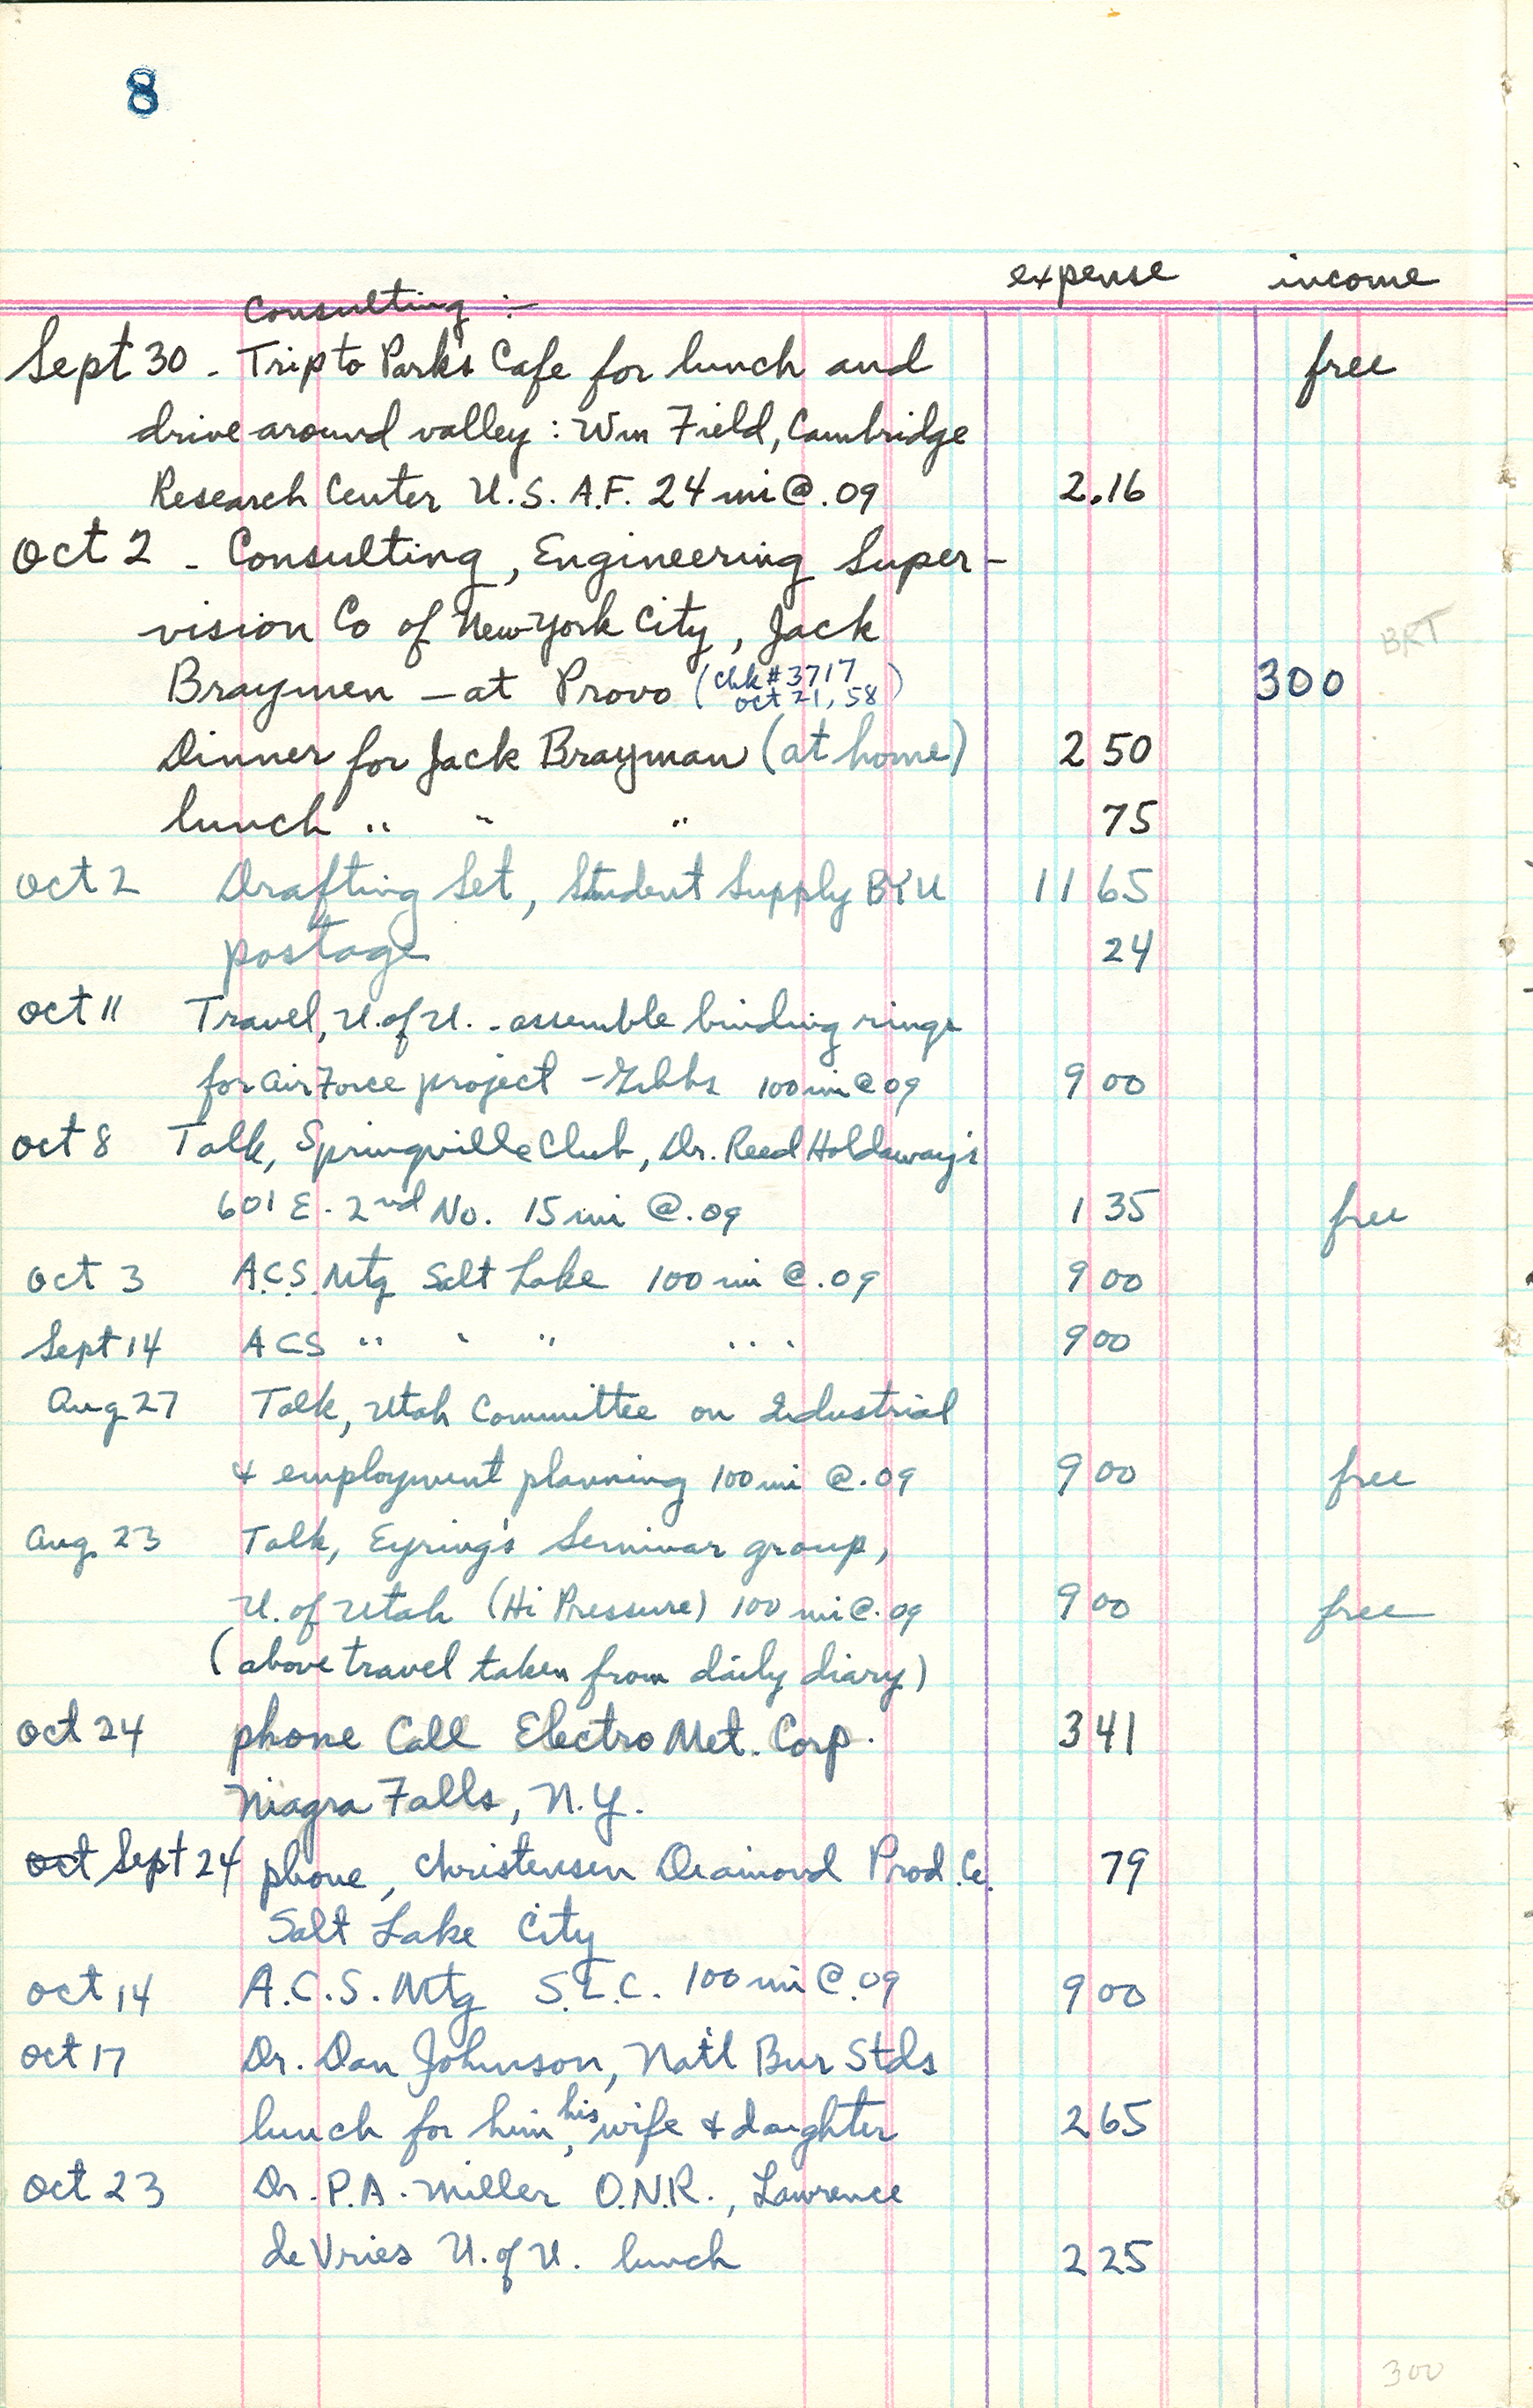 8
expense income
Consulting :-
Sept 30 - Trip to Park's Cafe for lunch and free
drive around valley : Wm Field, Cambridge
Research Center U.S. A.F. 24 mi @ .09 2.16
Oct 2 - Consulting, Engineering Super-
vision Co of New York City, Jack BRT
Braymen - at Provo (chk # 3717 300
oct 21, 58)
Dinner for Jack Brayman (at home) 2 50
lunch " " " 75
Oct 2 Drafting Set, Student Supply BYU 11 65
postage 24
Oct 11 Travel, U. of U. - assemble binding rings
for Air Force project - Gibbs 100 mi @ 09 9 00
Oct 8 Talk, Springville Club, Dr. Reed Holdaway's
601 E. 2nd No. 15 mi @ .09 1 35 free
Oct 3 A.C.S. Mtg Salt Lake 100 mi @ .09 9 00
Sept 14 ACS " " " " " 9 00
Aug 27 Talk, Utah Committee on Industrial
& employment planning 100 mi @ .09 9 00 free
Aug. 23 Talk, Eyring's Seminar group,
U. of Utah (Hi Pressure) 100 mi @ .09 9 00 free
(above travel taken from daily diary)
Oct 24 phone Call Electro Met. Corp. 3 41
Niagra Falls, N.Y.
oct Sept 24 phone, Christensen Diamond Prod. Co. 79
Salt Lake City
Oct 14 A.C.S. Mtg S.L.C. 100 mi @ .09 9 00
Oct 17 Dr. Dan Johnson, Nat'l Bur Stds
lunch for him, his wife & daughter 2 65
Oct 23 Dr. P.A. Miller O.N.R., Lawrence
de Vries U. of U. lunch 2 25
300